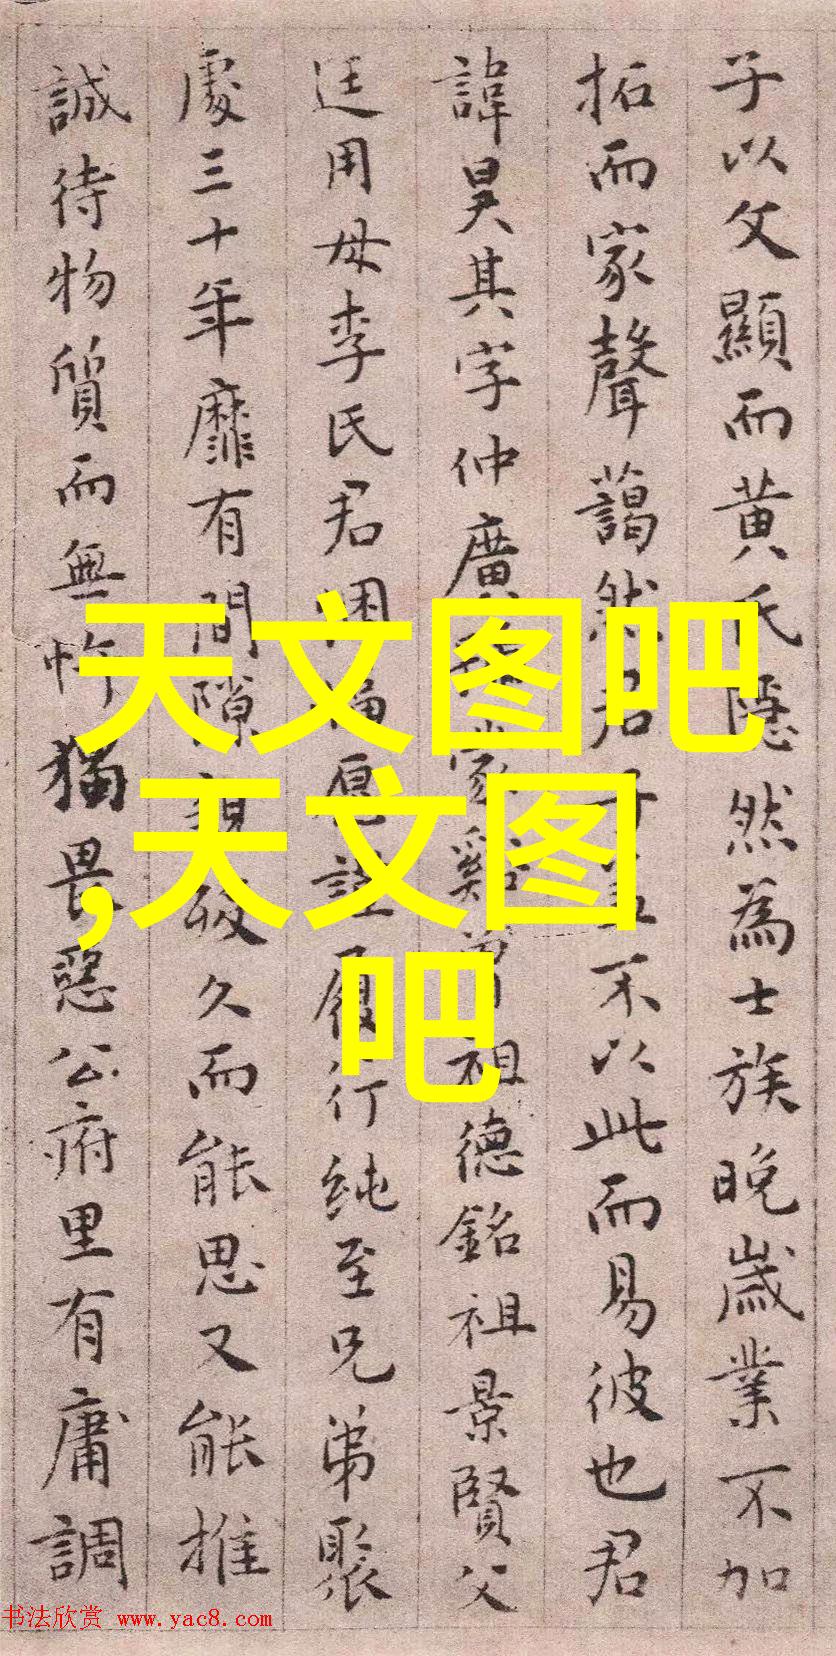 子以父顯而黃氏隱然為士族晚歲業不加
拓而家聲藹然君子不以此而易彼也君
諱昊其字仲廣祖德銘祖景賢父
廷用母李氏君履行純至兄弟聚
處三十年靡有間隙久而能思又能推
誠待物質而無忤猶畏惡公府里有庸調
天文图吧
,天文图
吧
书法欣赏 www.yac8.com